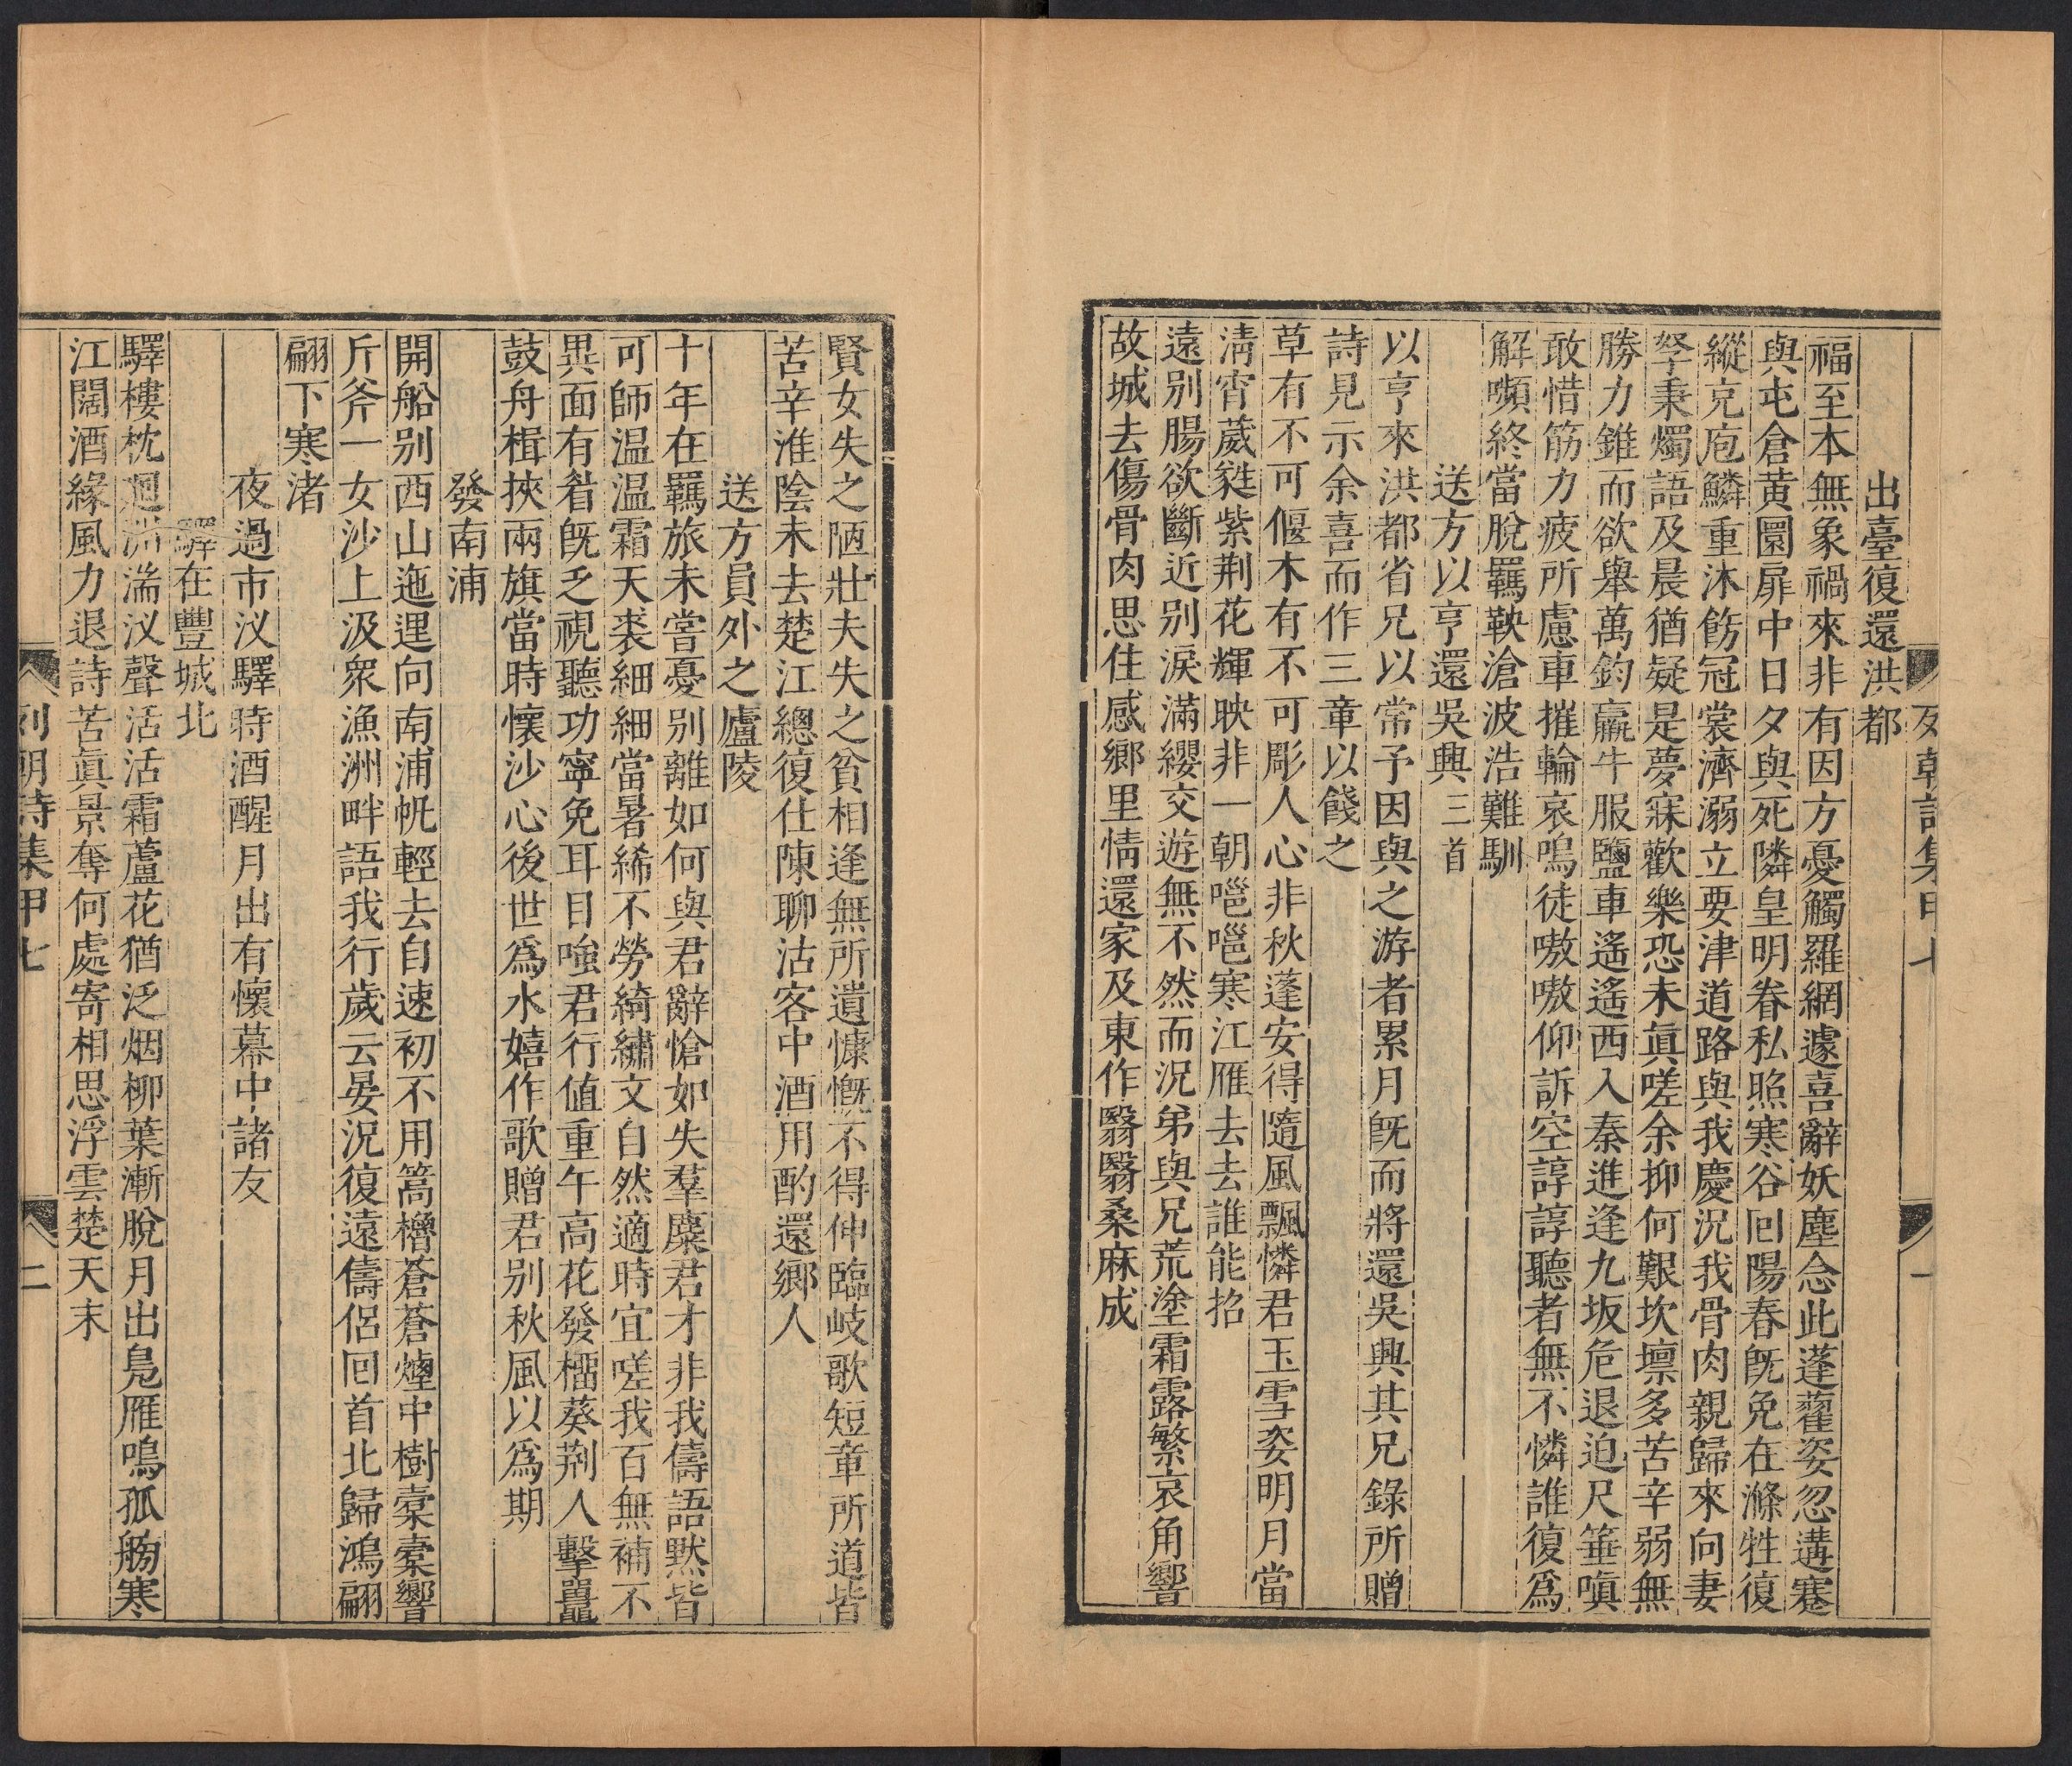 列朝詩集甲七
一
出臺復還洪都
福至本無象禍來非有因方憂觸羅網遽喜辭妖塵念此蓬藋姿忽遘蹇
與屯倉黃圜扉中日夕與死隣皇明眷私照寒谷囘陽春旣免在滌牲復
縱克庖鱗重沐飭冠裳濟溺立要津道路與我慶況我骨肉親歸來向妻
孥秉燭語及晨猶疑是夢寐歡樂恐未眞嗟余抑何艱坎壈多苦辛弱無
勝力錐而欲舉萬鈞羸牛服鹽車遙遙西入秦進逢九坂危退迫尺箠嗔
敢惜筋力疲所慮車摧輪哀鳴徒嗷嗷仰訴空諄諄聽者無不憐誰復爲
解嚬終當脫羈鞅滄波浩難馴
送方以亨還吳興三首
以亨來洪都省兄以常予因與之游者累月旣而將還吳興其兄錄所贈
詩見示余喜而作三章以餞之
草有不可偃木有不可彫人心非秋蓬安得隨風飄憐君玉雪姿明月當
淸宵葳蕤紫荆花輝映非一朝嗈嗈寒江雁去去誰能招
遠别腸欲斷近别淚滿纓交遊無不然而況弟與兄荒塗霜露繁哀角響
故城去傷骨肉思住感鄉里情還家及東作翳翳桑麻成
賢女失之陋壯夫失之貧相逢無所遺慷慨不得伸臨岐歌短章所道皆
苦辛淮陰未去楚江總復仕陳聊沽客中酒用酌還鄉人
送方員外之廬陵
十年在羈旅未嘗憂别離如何與君辭愴如失羣麋君才非我儔語默皆
可師溫溫霜天裘細細當暑絺不勞綺繡文自然適時宜嗟我百無補不
異面有眢旣乏視聽功寧免耳目嗤君行値重午高花發榴葵荆人擊鼉
鼓舟楫挾兩旗當時懷沙心後世爲水嬉作歌贈君别秋風以爲期
發南浦
開船别西山迤邐向南浦帆輕去自速初不用篙櫓蒼蒼煙中樹橐橐響
斤斧一女沙上汲衆漁洲畔語我行歲云晏況復遠儔侶囘首北歸鴻翩
翩下寒渚
夜過市汊驛時酒醒月出有懷幕中諸友
驛在豐城北
驛樓枕迴湍湍汊聲活活霜蘆花猶泛烟柳葉漸脫月出鳧雁鳴孤舫寒
江闊酒緣風力退詩苦眞景奪何處寄相思浮雲楚天末
列朝詩集甲七
二